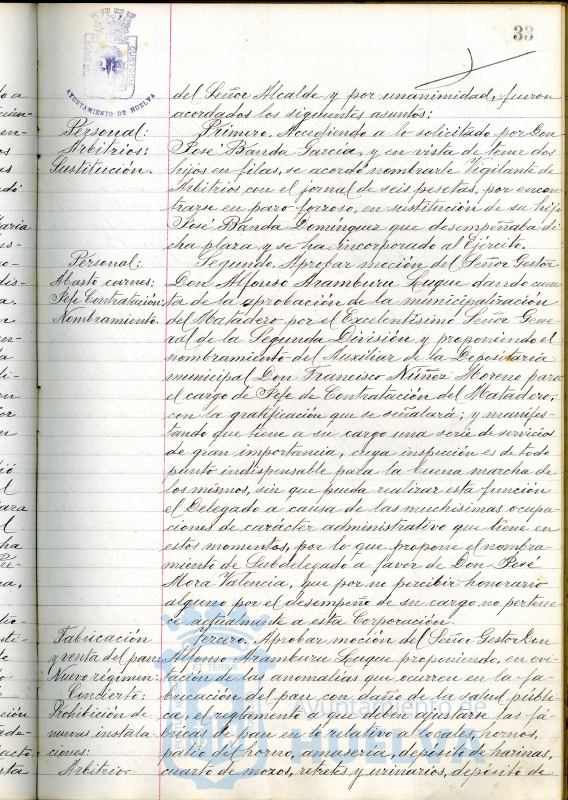 33
AYUNTAMIENTO DE HUELVA
del Señor Alcalde y por unanimidad, fueron
acordados los siguientes asuntos:
Personal:
Arbitrios:
Sustitución.
Primero. Accediendo a lo solicitado por Don
José Banda García, y en vista de tener dos
hijos en filas, se acordó nombrarle Vigilante de
Arbitrios con el jornal de seis pesetas, por encon
trarse en paro forzoso, en sustitución de su hijo
José Banda Domínguez que desempeñaba di
cha plaza y se ha incorporado al Ejército.
Personal:
Abasto carnes:
Jefe Contratación:
Nombramiento.
Segundo. Aprobar moción del Señor Gestor
Don Alfonso Aramburu Luque dando cuen
ta de la aprobación de la municipalización
del Matadero por el Excelentísimo Señor Gene
ral de la Segunda División y proponiendo el
nombramiento del Auxiliar de la Depositaría
municipal Don Francisco Núñez Moreno para
el cargo de Jefe de Contratación del Matadero,
con la gratificación que se señalará; y manifes
tando que tiene a su cargo una serie de servicios
de gran importancia, cuya inspección es de todo
punto indispensable para la buena marcha de
los mismos, sin que pueda realizar esta función
el Delegado a causa de las muchísimas ocupa
ciones de carácter administrativo que tiene en
estos momentos, por lo que propone el nombra
miento de Subdelegado a favor de Don José
Mora Valencia, que por no percibir honorario
alguno por el desempeño de su cargo no pertene
ce actualmente a esta Corporación.
Fabricación
y venta del pan:
Nuevo régimen:
Concierto:
Prohibición de
nuevas instala
ciones:
Arbitrio
Tercero. Aprobar moción del Señor Gestor Don
Alfonso Aramburu Luque proponiendo, en evi
tación de las anomalías que ocurren en la fa
bricación del pan con daño de la salud públi
ca, el reglamento a que deben ajustarse las fá
bricas de pan en lo relativo a locales, hornos,
patio del horno, amasería, depósito de harinas,
cuarto de mozos, retretes y urinarios, depósito de
Ayuntamiento de
HUELVA